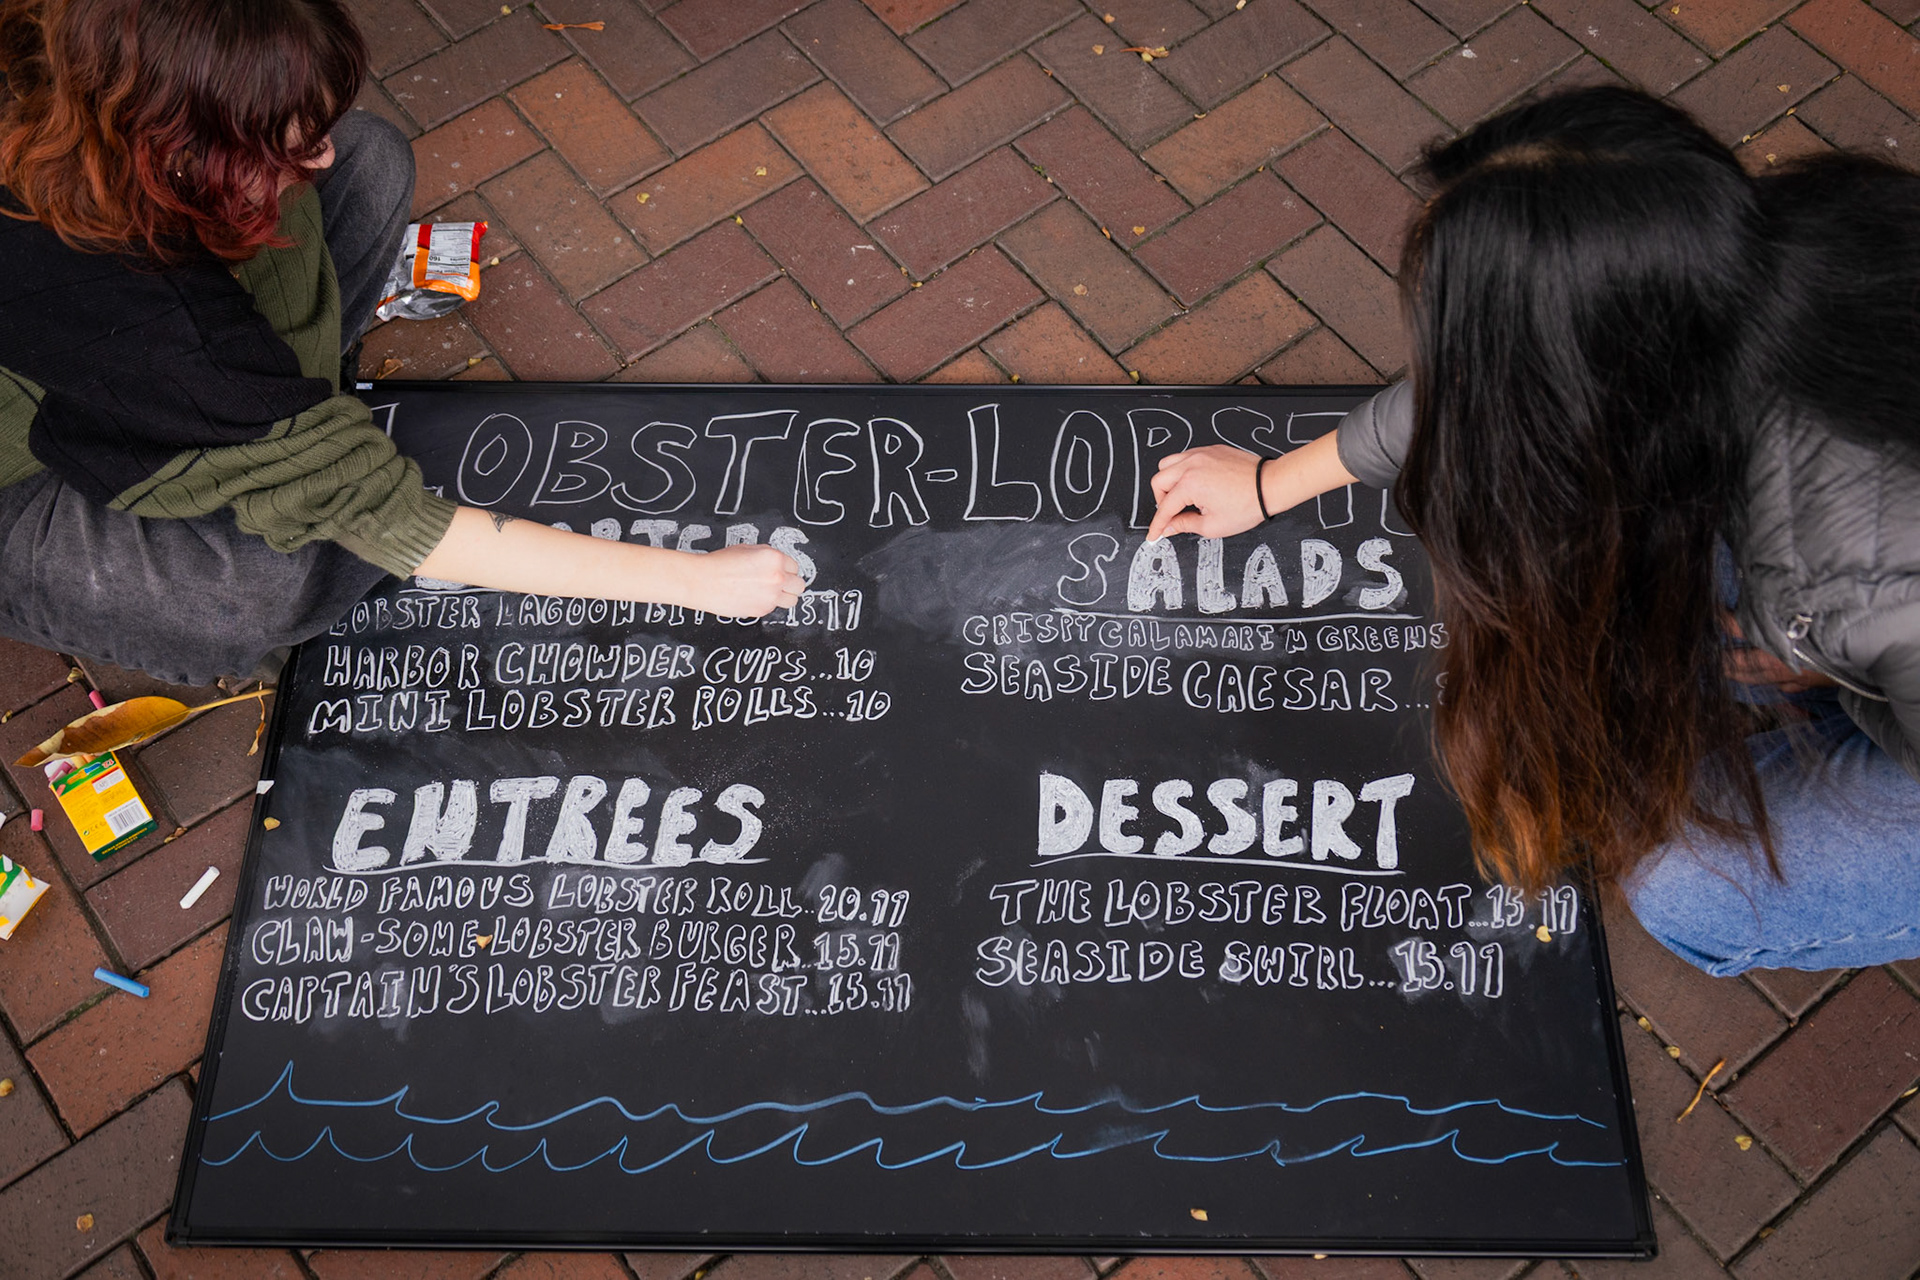 LOBSTER-LOBST
SALADS
LOBSTER LAGOON BITES...13.99
HARBOR CHOWDER CUPS...10
MINI LOBSTER ROLLS...10
CRISPY CALAMARI N GREENS
SEASIDE CAESAR...
ENTREES
WORLD FAMOUS LOBSTER ROLL..20.99
CLAW-SOME LOBSTER BURGER..15.99
CAPTAIN'S LOBSTER FEAST...15.99
DESSERT
THE LOBSTER FLOAT...15.99
SEASIDE SWIRL...15.99